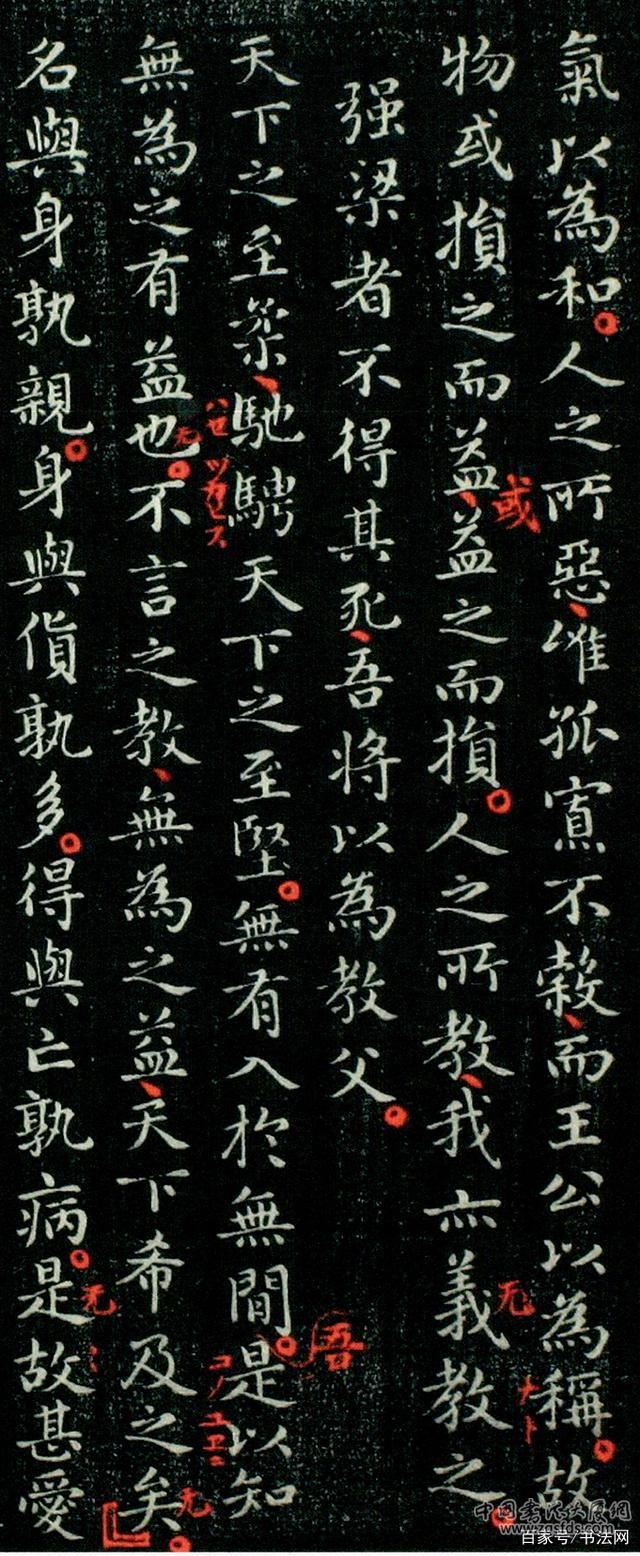 氣以為和。人之所惡、唯孤寡不穀、而王公以為稱。故
物或損之而益、益之而損。人之所教、我亦義教之。
或
无
强梁者不得其死、吾將以為教父。
天下之至柔、馳騁天下之至堅。無有入於無間。是以知
吾
コノユヱニ
無為之有益也。不言之教、無為之益、天下希及之矣。
无
无
名與身孰親。身與貨孰多。得與亡孰病。是故甚愛
无
百家号/书法网